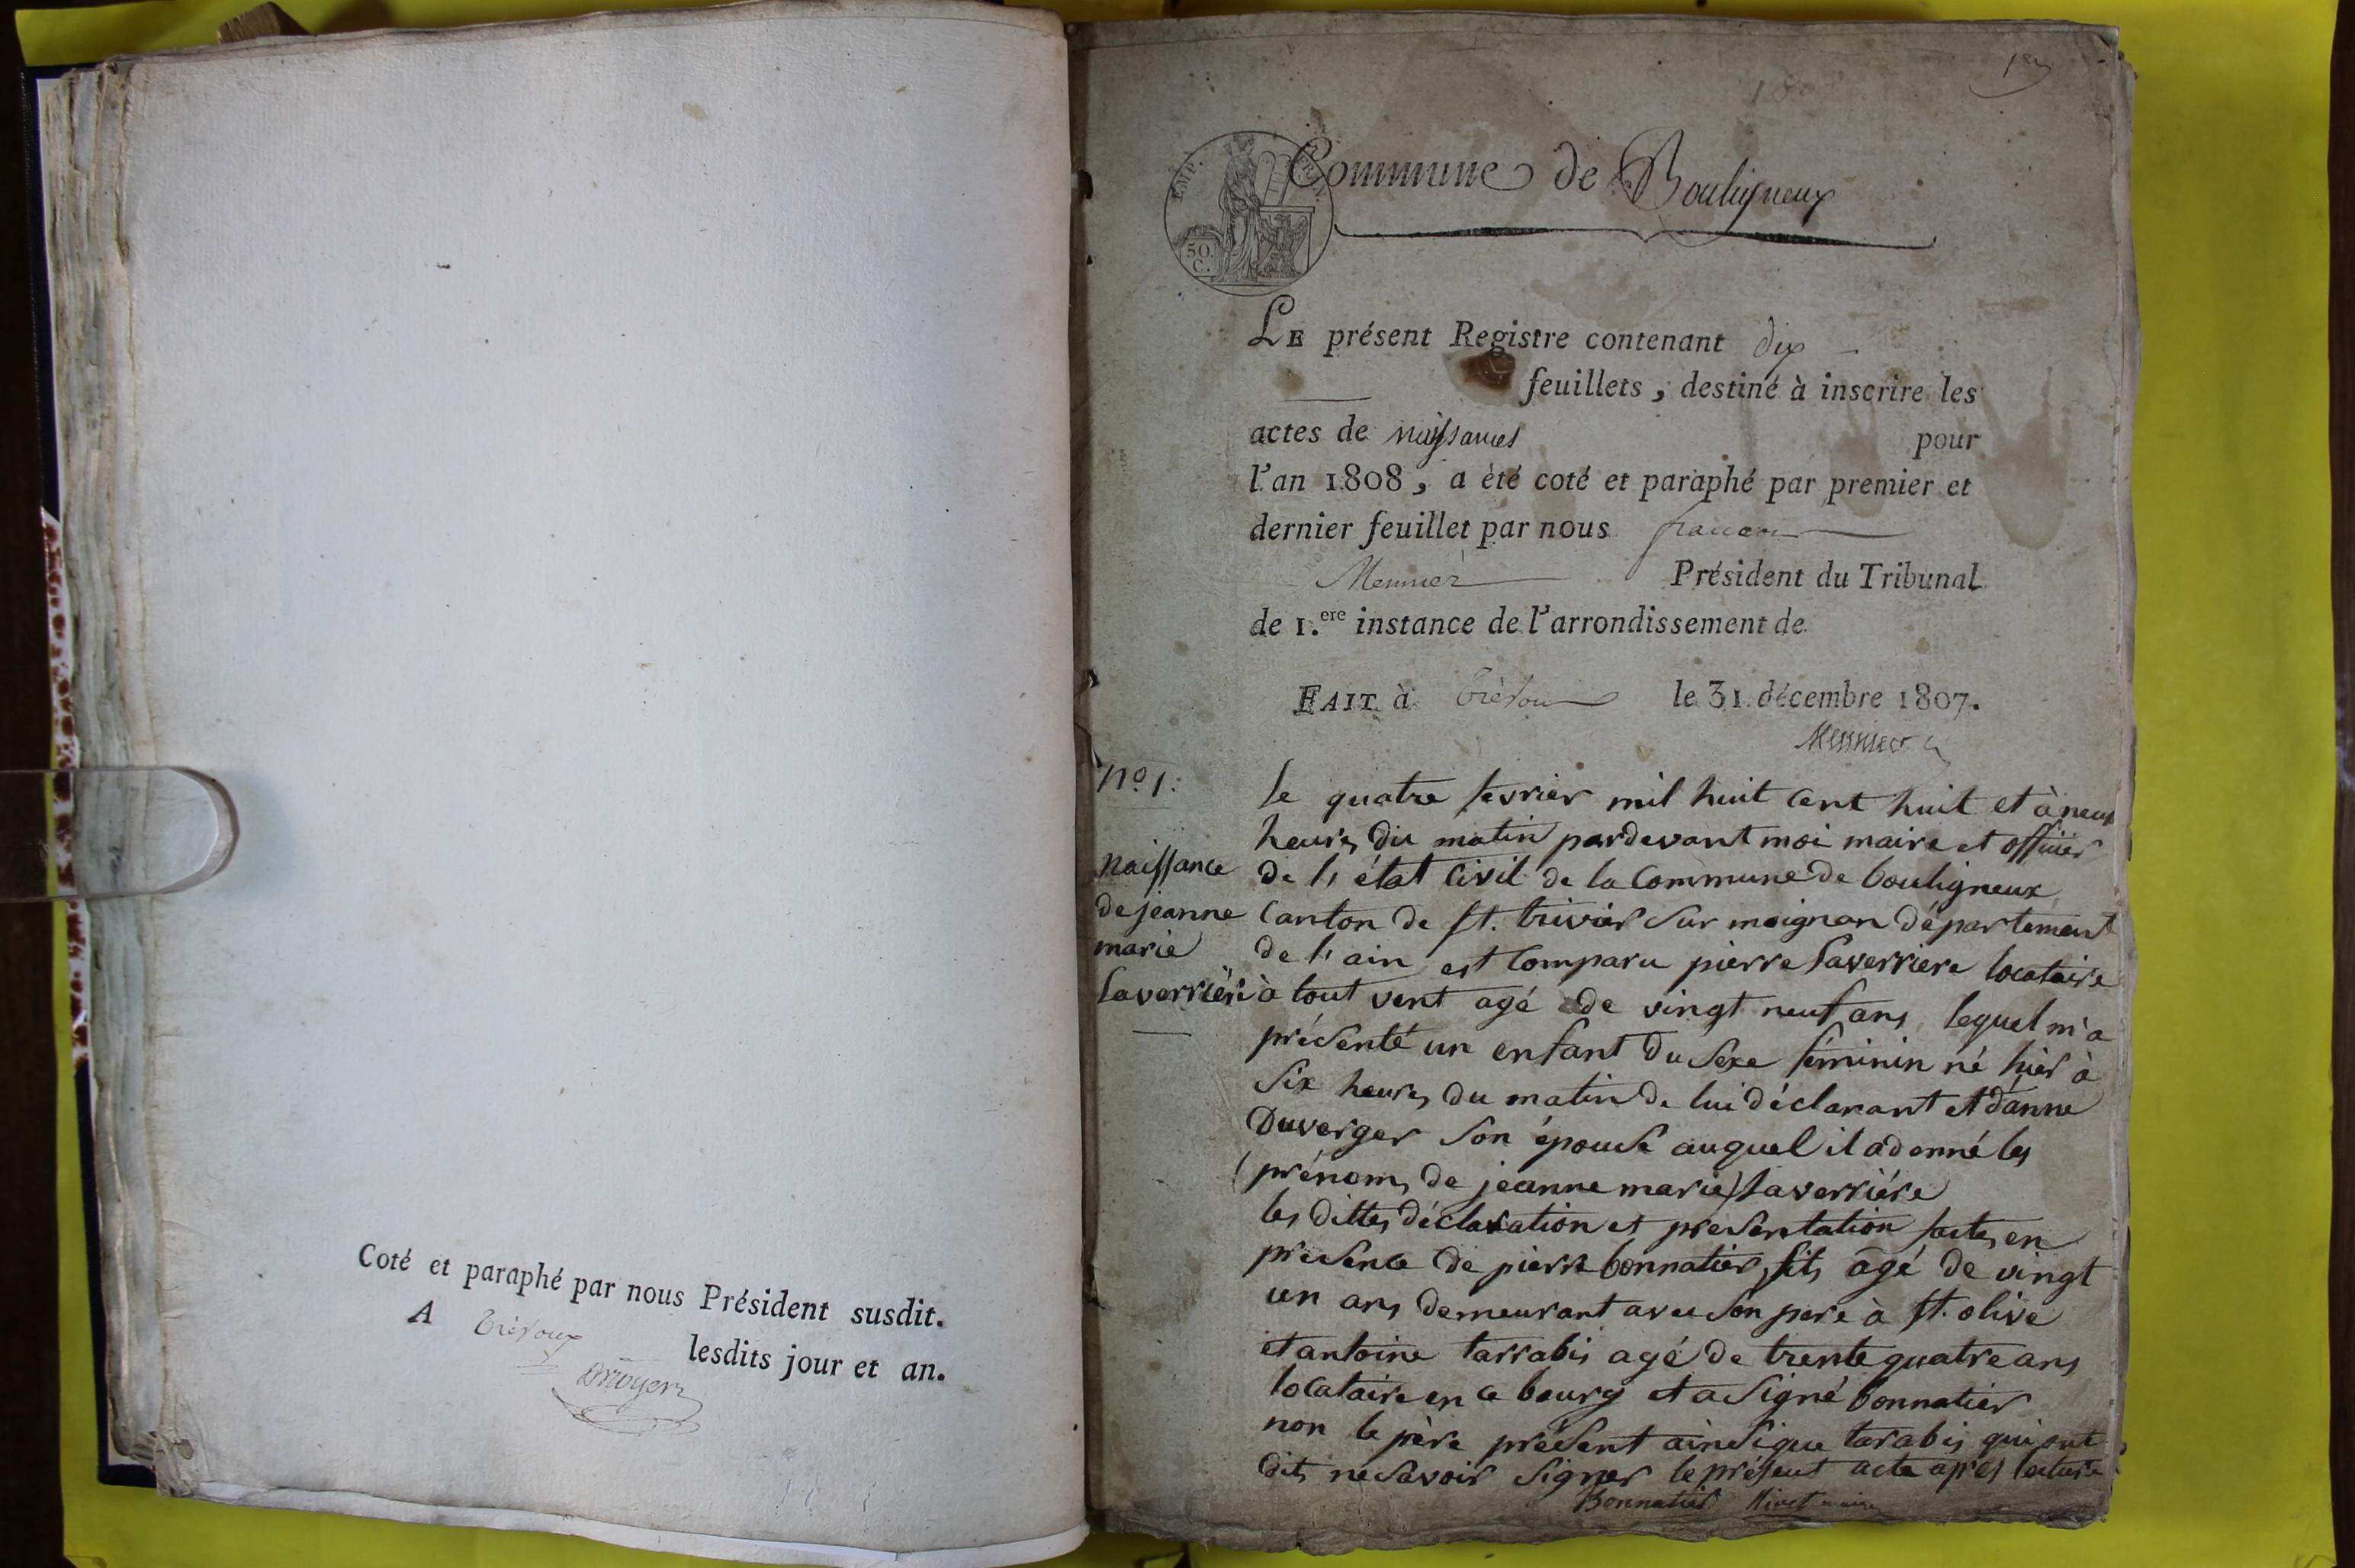 Coté et paraphé par nous Président susdit.
A Trévoux lesdits jour et an.
1er
Commune de Bouligneux
EMP.
50
C.
LE présent Registre contenant dix
feuillets, destiné à inscrire les
actes de naissances pour
l'an 1808, a été coté et paraphé par premier et
dernier feuillet par nous francois
Meunier Président du Tribunal
de 1.ere instance de l'arrondissement de
FAIT à Trévoux le 31 décembre 1807.
Meunier
No. 1:
naissance
de jeanne
marie
laverriére
le quatre fevrier mil huit cent huit et à neuf
heures du matin pardevant moi maire et officier
de l'état civil de la commune de bouligneux
canton de st. trivier sur moignan département
de l'ain est comparu pierre laverriere locataire
à tout vent agé de vingt neuf ans lequel m'a
présenté un enfant du sexe féminin né hier à
six heures du matin de lui déclarant et d'anne
Duverger son épouse auquel il a donné les
(prénoms de jeanne marie) laverriére
les dittes déclaration et presentation faites en
presence de pierre bonnatier fils agé de vingt
un ans demeurant avec son pere à st. olive
et antoine tarrabis agé de trente quatre ans
locataire en ce bourg et a signé bonnatier
non le père présent ainsi que tarabis qui ont
dits ne savoir signer le présent acte après lecture
Bonnatier maire